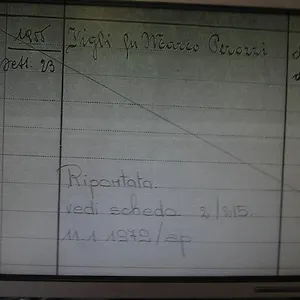 1955
Sett. 23
Vigli fu Marco Perozzi
Riportata.
vedi scheda 2/815.
11.1.1979/ap